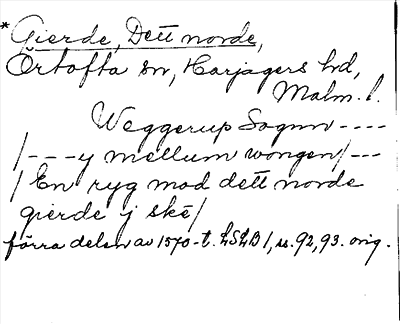 * Gierde, Dett norde,
Örtofta sn, Harjagers hd,
Malm. l.
Weggerup Sognn ----
/---y mellum wongen/---
/ En ryg mod dett norde
gierde j skē/
förra delen av 1570-t. LSLB 1, ss. 92, 93. orig.